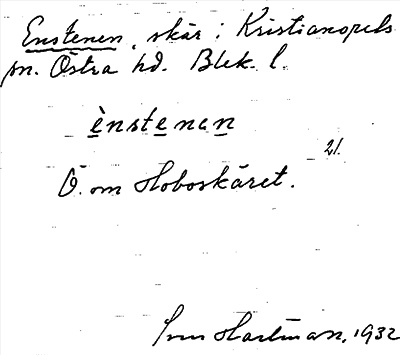 Enstenen, skär i Kristianopels
sn. Östra hd. Blek. l.
ènstenan
21.
Ö. om Hoboskäret.
Sven Hartman, 1932